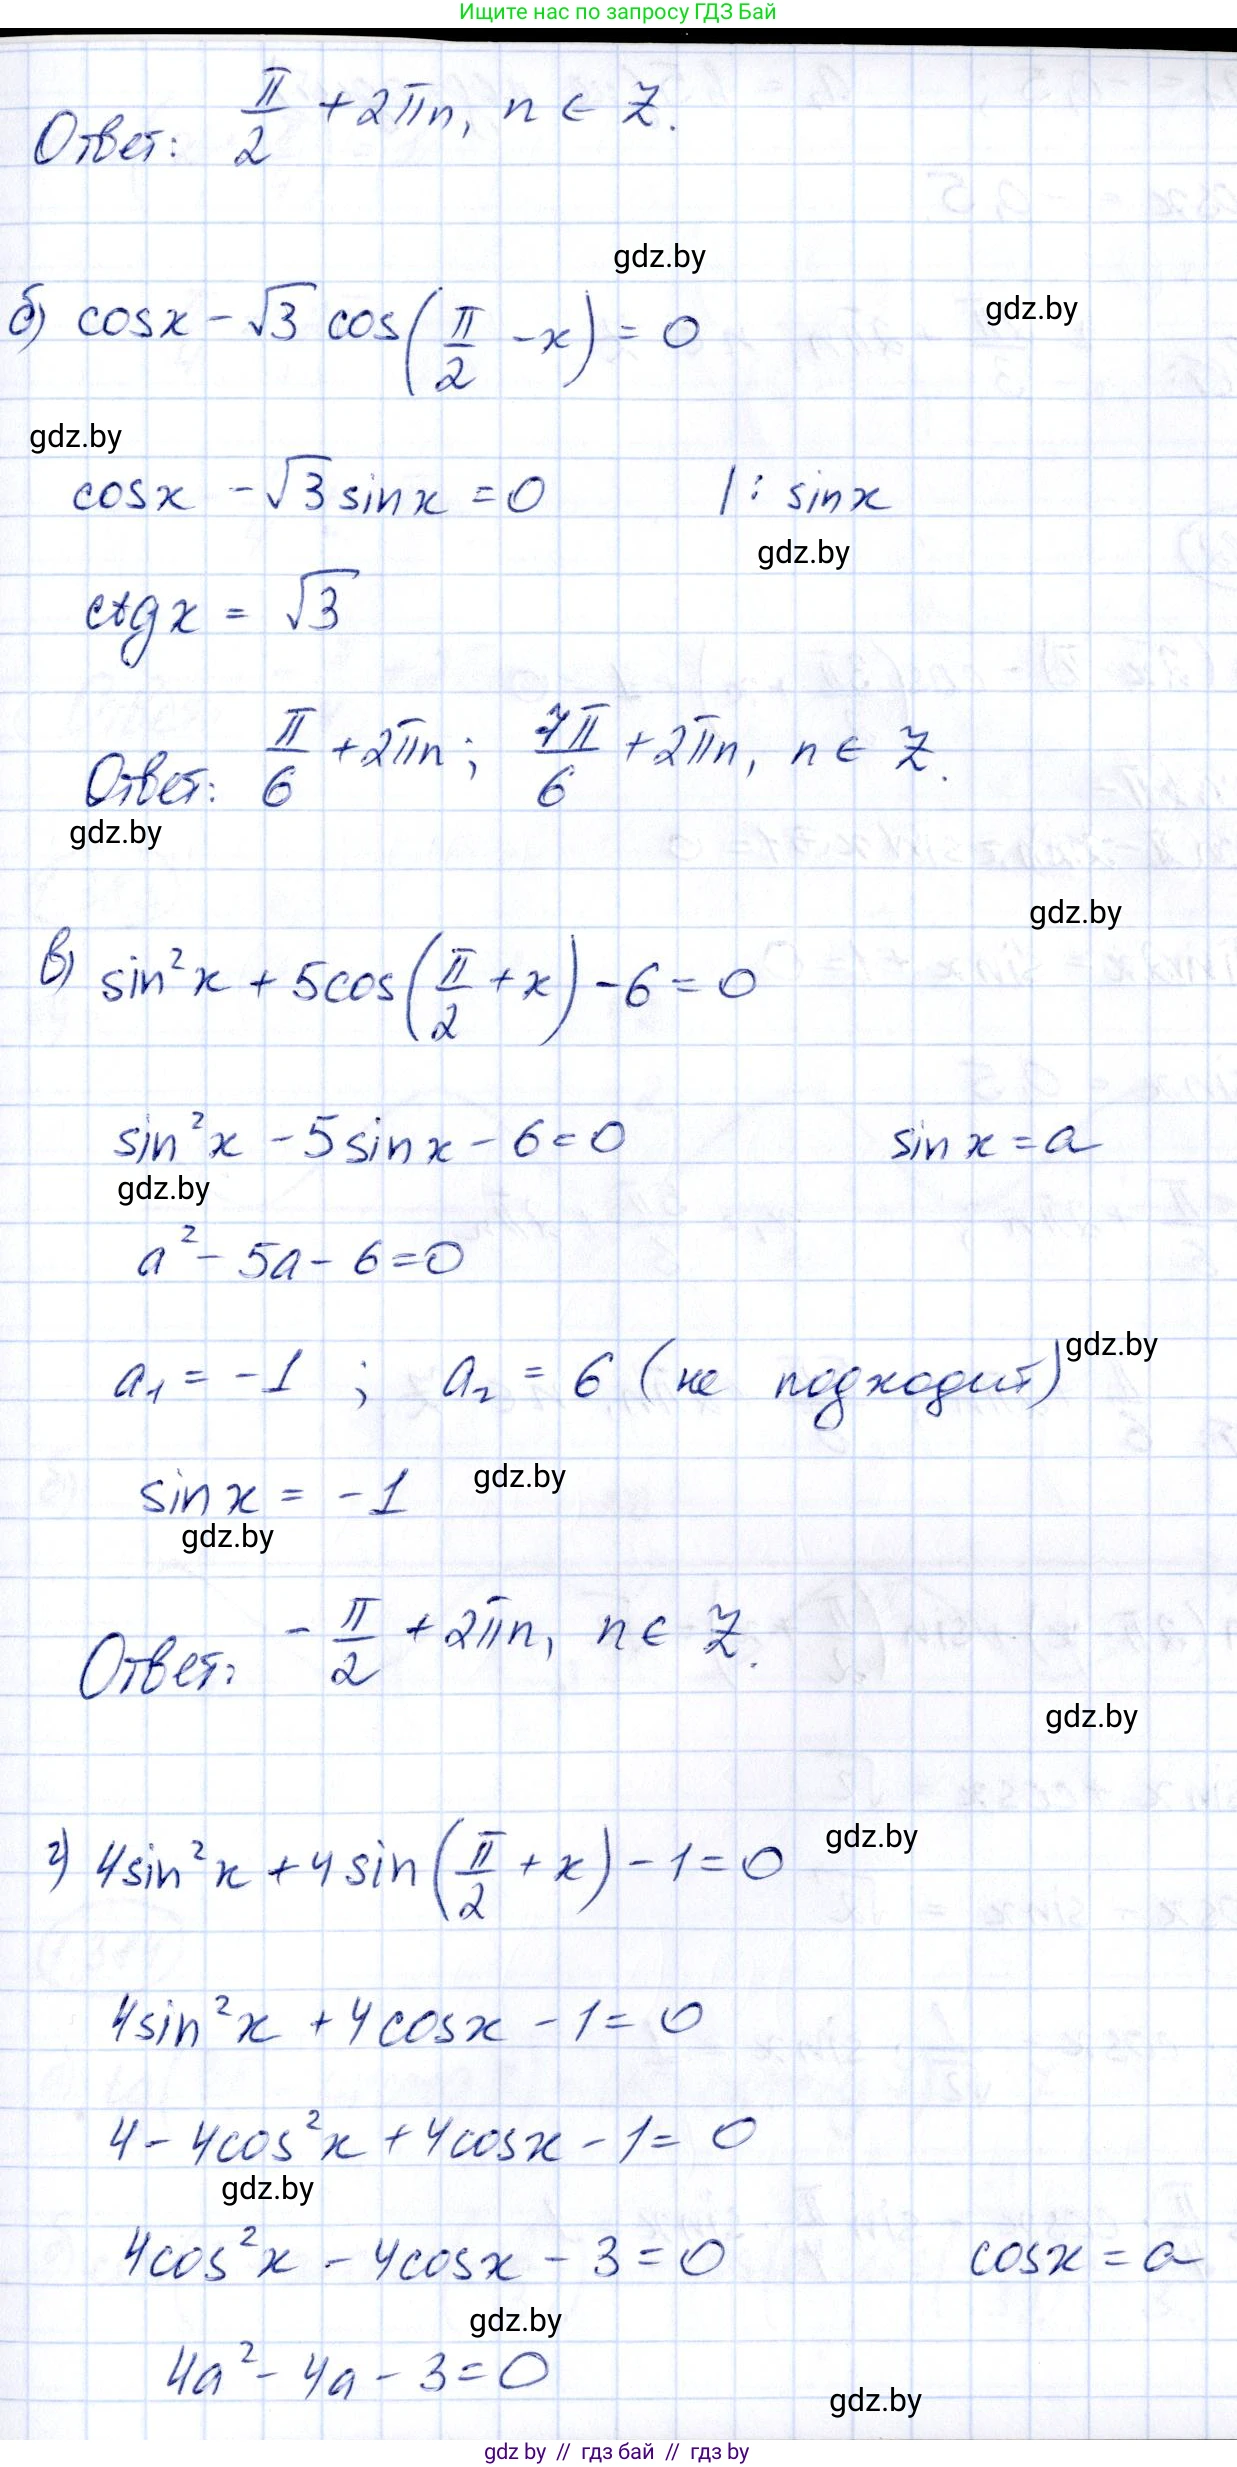 Ищите нас по запросу ГДЗ Бай
Ответ: π/2 + 2πn, n ∈ Z.
gdz.by
gdz.by
б) cosx - √3 cos(π/2 - x) = 0
gdz.by
cosx - √3 sinx = 0 | : sinx
gdz.by
ctgx = √3
Ответ: π/6 + 2πn; 7π/6 + 2πn, n ∈ Z.
gdz.by
gdz.by
в) sin²x + 5cos(π/2 + x) - 6 = 0
sin²x - 5sinx - 6 = 0 sinx = a
gdz.by
a² - 5a - 6 = 0
gdz.by
a₁ = -1 ; a₂ = 6 (не подходит)
gdz.by
sinx = -1
gdz.by
Ответ: -π/2 + 2πn, n ∈ Z.
gdz.by
gdz.by
г) 4sin²x + 4sin(π/2 + x) - 1 = 0
4sin²x + 4cosx - 1 = 0
4 - 4cos²x + 4cosx - 1 = 0
gdz.by
4cos²x - 4cosx - 3 = 0 cosx = a
gdz.by
4a² - 4a - 3 = 0
gdz.by
gdz by // гдз бай // гдз by